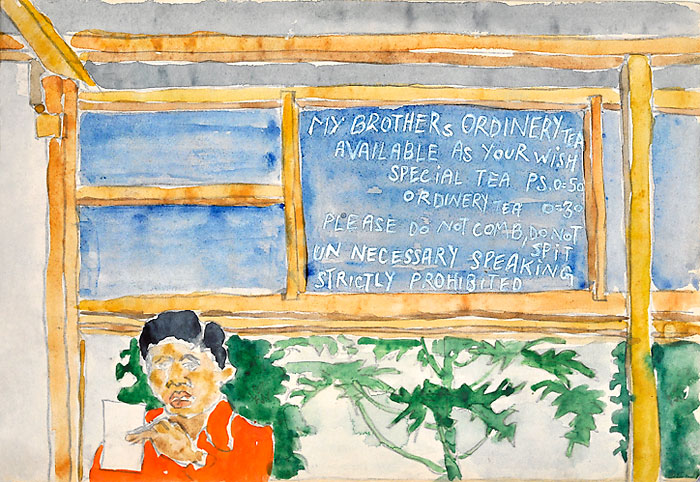 MY BROTHERs ORDINERY TEA
AVAILABLE AS YOUR WISH
SPECIAL TEA PS. 0=50
ORDINERY TEA 0=30
PLEASE DO NOT COMB, DO NOT
SPIT
UN NECESSARY SPEAKING
STRICTLY PROHIBITED